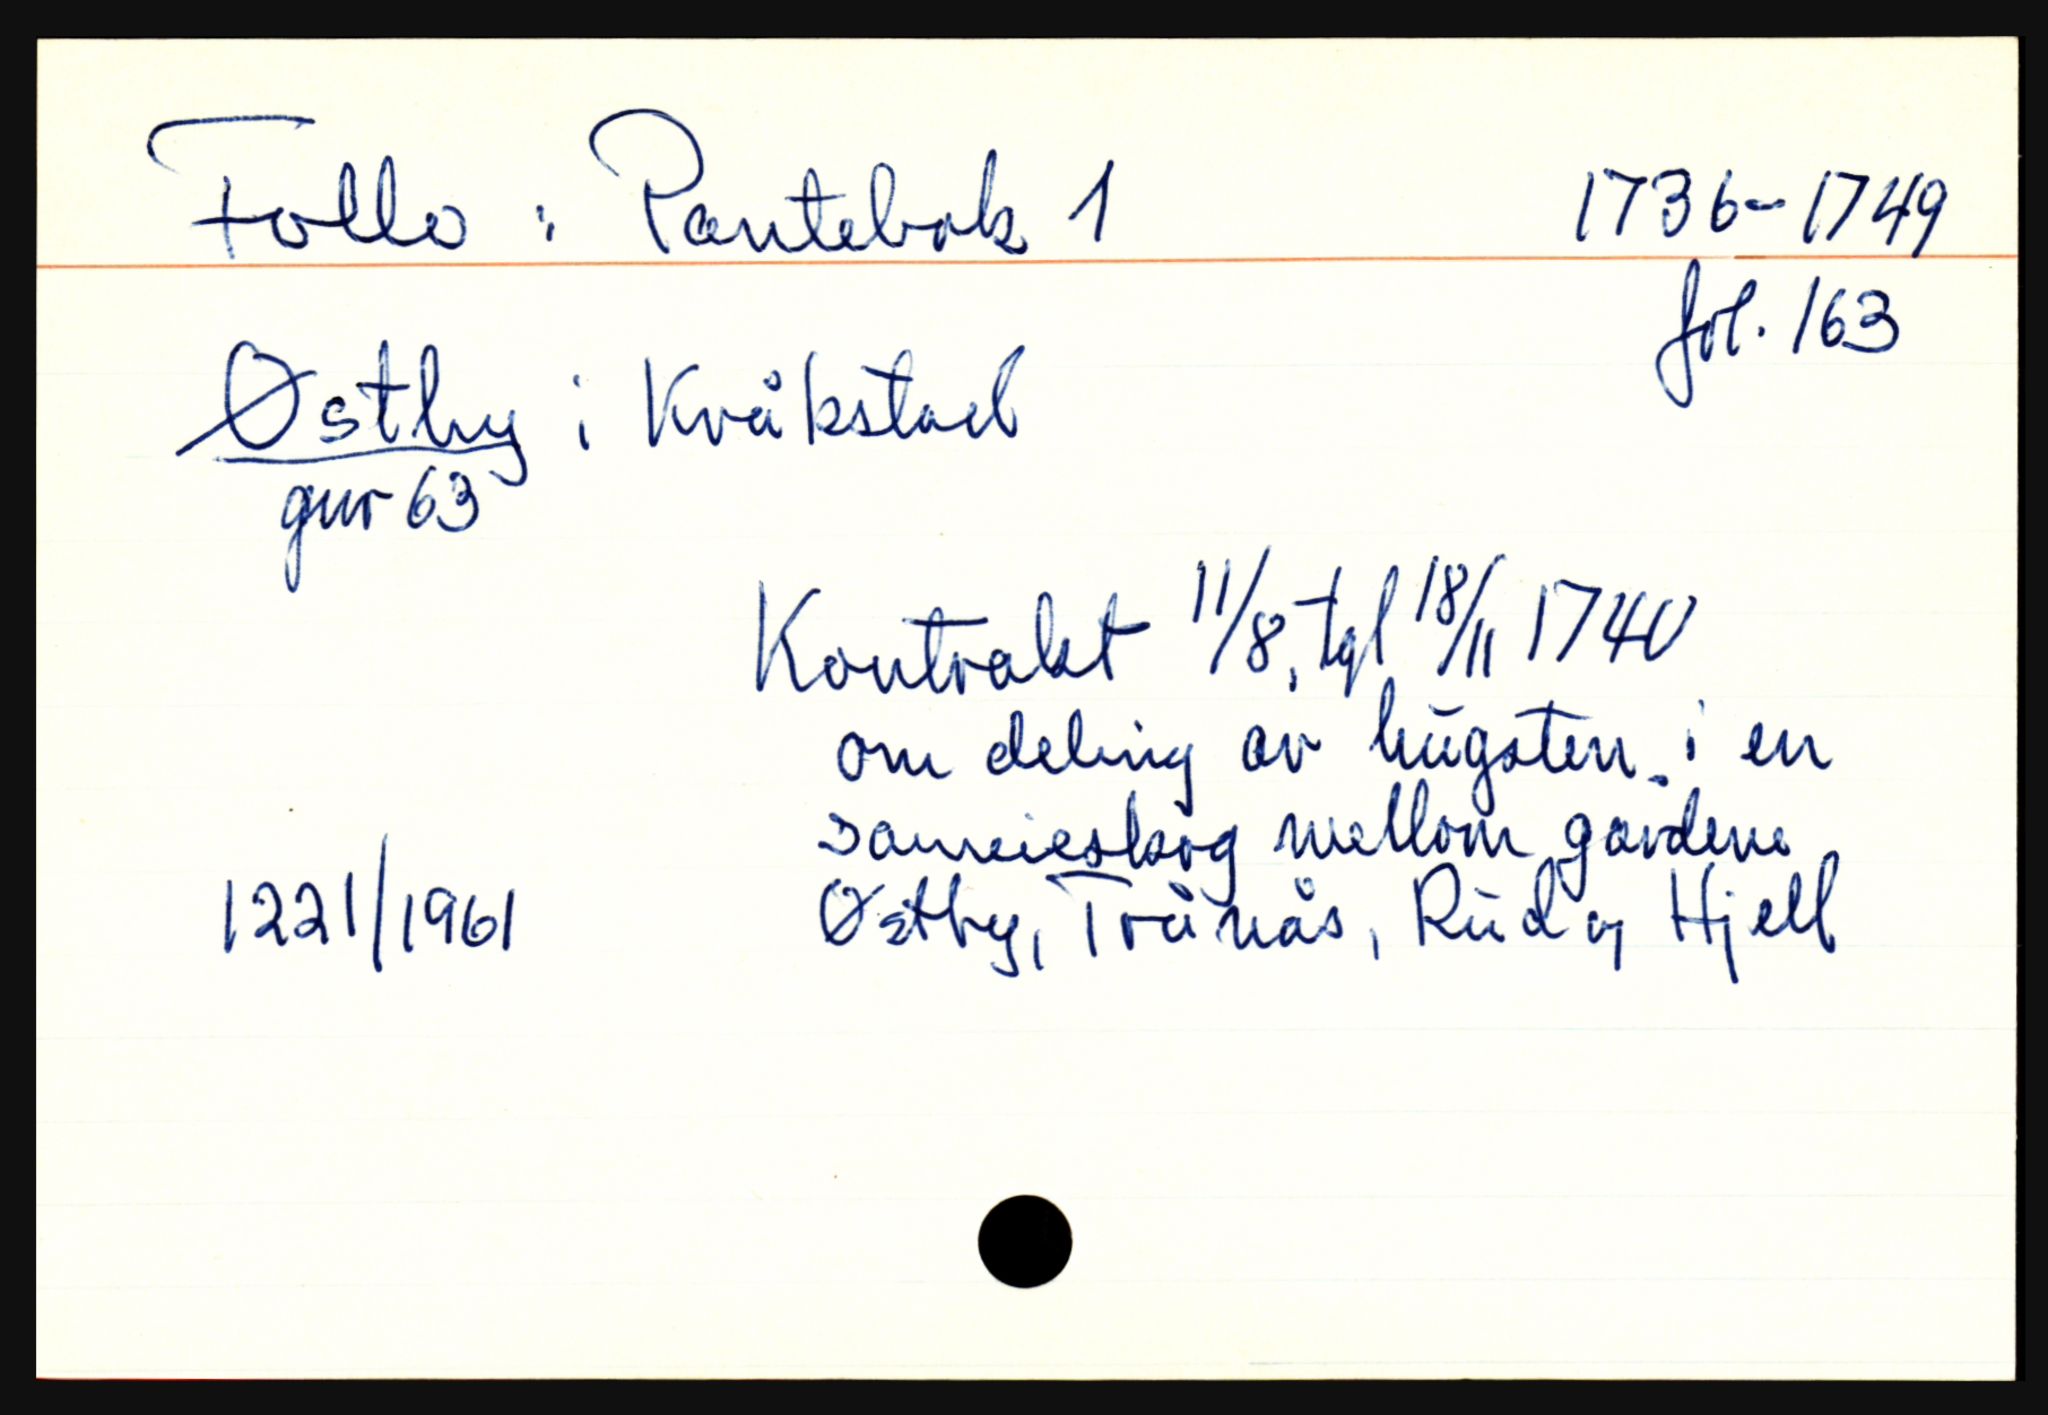 Follo: Pantebok 1 1736-1749
fol. 163
Østby i Kråkstad
gnr 63
Kontrakt 11/8, tgl 18/11 1740
om deling av hugsten i en
sameieskog mellom gardene
1221/1961 Østby, Trånås, Rud og Hjell